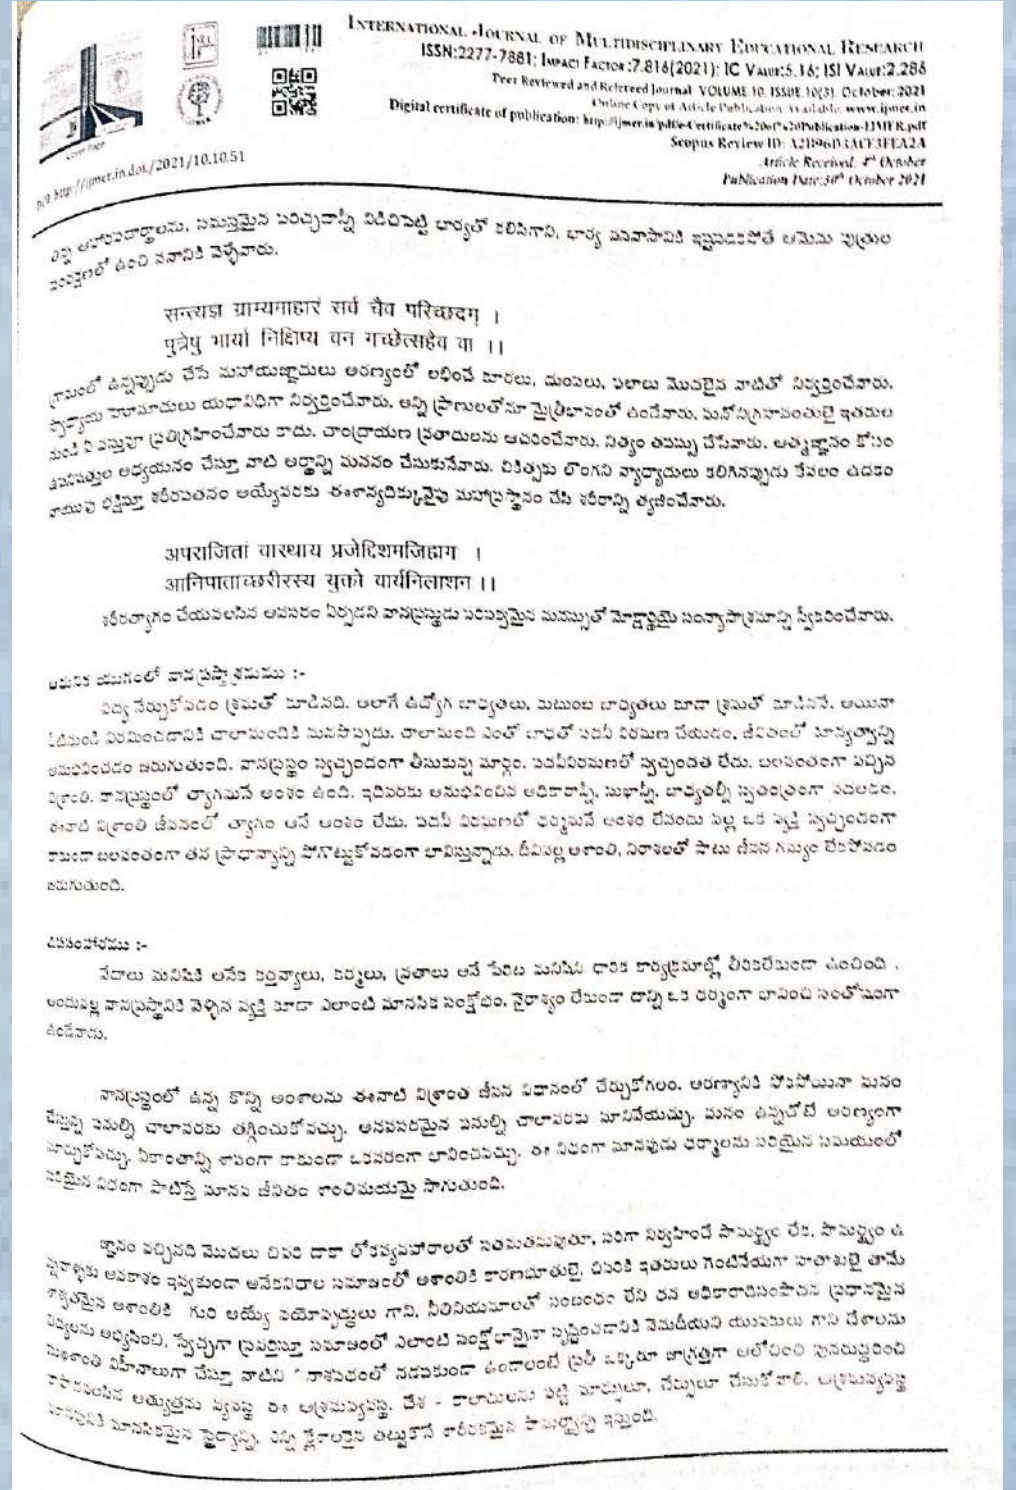 INTERNATIONAL JOURNAL OF MULTIDISCIPLINARY EDUCATIONAL RESEARCH
ISSN:2277-7881; IMPACT FACTOR :7.816(2021); IC VALUE:5.16; ISI VALUE:2.286
Peer Reviewed and Refereed Journal: VOLUME:10, ISSUE:10(3), October:2021
Online Copy of Article Publication Available: www.ijmer.in
Digital certificate of publication: http://ijmer.in/pdf/e-Certificate%20of%20Publication-IJMER.pdf
Scopus Review ID: A2B96D3ACF3FEA2A
Article Received: 4th October
Publication Date:30th October 2021
Cover Page
DOI: http://ijmer.in.doi./2021/10.10.51
ఆహారపదార్థాలను, సమస్తమైన పరిచ్ఛదాన్నీ విడిచిపెట్టి భార్యతో కలిసిగాని, భార్య వనవాసానికి ఇష్టపడకపోతే ఆమెను పుత్రుల
సంరక్షణలో ఉంచి వనానికి వెళ్ళేవారు.
सन्त्यज्ञ ग्राम्यमाहारं सर्व चैव परिच्छदम् ।
पुत्रेषु भार्या निक्षिप्य वन गच्छेत्सहैव वा ।।
గ్రామంలో ఉన్నప్పుడు చేసే మహాయజ్ఞాదులు అరణ్యంలో లభించే కూరలు, దుంపలు, ఫలాలు మొదలైన వాటితో నిర్వర్తించేవారు.
స్వాధ్యాయ హోమాదులు యథావిధిగా నిర్వర్తించేవారు. అన్ని ప్రాణులతోనూ మైత్రీభావంతో ఉండేవారు. మనోనిగ్రహవంతులై ఇతరుల
నుండి ఏ వస్తువూ ప్రతిగ్రహించేవారు కాదు. చాంద్రాయణ వ్రతాదులను ఆచరించేవారు. నిత్యం తపస్సు చేసేవారు. ఆత్మజ్ఞానం కోసం
ఉపనిషత్తుల అధ్యయనం చేస్తూ వాటి అర్థాన్ని మననం చేసుకునేవారు. చికిత్సకు లొంగని వ్యాధ్యాదులు కలిగినప్పుడు కేవలం ఉదకం
వాయువు భక్షిస్తూ శరీరపతనం అయ్యేవరకు ఈశాన్యదిక్కువైపు మహాప్రస్థానం చేసి శరీరాన్ని త్యజించేవారు.
अपराजितां वास्थाय प्रजेद्दिशमजिह्माग ।
आनिपाताच्छरीरस्य युक्तो वार्यनिलाशन ।।
శరీరత్యాగం చేయవలసిన అవసరం ఏర్పడని వానప్రస్థుడు పరిపక్వమైన మనస్సుతో మోక్షార్థియై సంన్యాసాశ్రమాన్ని స్వీకరించేవారు.
ఆధునిక యుగంలో వానప్రస్థాశ్రమము :-
విద్య నేర్చుకోవడం శ్రమతో కూడినది. అలాగే ఉద్యోగ బాధ్యతలు, కుటుంబ బాధ్యతలు కూడా శ్రమతో కూడినవే. అయినా
వీటినుండి విరమించడానికి చాలామందికి మనసొప్పదు. చాలామంది ఎంతో బాధతో పదవీ విరమణ చేయడం, జీవితంలో శూన్యత్వాన్ని
అనుభవించడం జరుగుతుంది. వానప్రస్థం స్వచ్ఛందంగా తీసుకున్న మార్గం. పదవీవిరమణలో స్వచ్ఛందత లేదు. బలవంతంగా వచ్చిన
విశ్రాంతి. వానప్రస్థంలో త్యాగమనే అంశం ఉంది. ఇదివరకు అనుభవించిన అధికారాన్నీ, సుఖాన్నీ, బాధ్యతల్నీ స్వతంత్రంగా వదలడం.
ఈనాటి విశ్రాంతి జీవనంలో త్యాగం అనే అంశం లేదు. పదవీ విరమణలో ధర్మమనే అంశం లేనందు వల్ల ఒక వ్యక్తి స్వచ్ఛందంగా
కాకుండా బలవంతంగా తన ప్రాధాన్యాన్ని పోగొట్టుకోవడంగా భావిస్తున్నాడు. దీనివల్ల అశాంతి, నిరాశలతో పాటు జీవన గమ్యం లేకపోవడం
జరుగుతుంది.
ఉపసంహారము :-
వేదాలు మనిషికి అనేక కర్తవ్యాలు, కర్మలు, వ్రతాలు అనే పేరిట మనిషిని ధార్మిక కార్యక్రమాల్లో తీరికలేకుండా ఉంచింది .
అందువల్ల వానప్రస్థానికి వెళ్ళిన వ్యక్తి కూడా ఎలాంటి మానసిక సంక్షోభం, నైరాశ్యం లేకుండా దాన్ని ఒక ధర్మంగా భావించి సంతోషంగా
ఉండేవాడు.
వానప్రస్థంలో ఉన్న కొన్ని అంశాలను ఈనాటి విశ్రాంత జీవన విధానంలో చేర్చుకోగలం. అరణ్యానికి పోకపోయినా మనం
చేస్తున్న పనుల్ని చాలావరకు తగ్గించుకోవచ్చు. అనవసరమైన పనుల్ని చాలావరకు మానివేయచ్చు. మనం ఉన్నచోటే అరణ్యంగా
మార్చుకోవచ్చు. ఏకాంతాన్ని శాపంగా కాకుండా ఒకవరంగా భావించవచ్చు. ఈ విధంగా మానవుడు ధర్మాలను సరియైన సమయంలో
సరియైన విధంగా పాటిస్తే మానవ జీవితం శాంతిమయమై సాగుతుంది.
జ్ఞానం వచ్చినది మొదలు చివరి దాకా లోకవ్యవహారాలతో సతమతమవుతూ, సరిగా నిర్వహించే సామర్థ్యం లేక, సామర్థ్యం ఉ
న్నవాళ్ళకు అవకాశం ఇవ్వకుండా అనేకవిధాల సమాజంలో అశాంతికి కారణభూతులై, చివరికి ఇతరులు గెంటివేయగా హతాశులై తామే
శాశ్వతమైన అశాంతికి గురి అయ్యే వయోవృద్ధులు గాని, నీతినియమాలతో సంబంధం లేని ధన అధికారాదిసంపాదన ప్రధానమైన
విద్యలను అభ్యసించి, స్వేచ్ఛగా ప్రవర్తిస్తూ సమాజంలో ఎలాంటి సంక్షోభాన్నైనా సృష్టించడానికి వెనుదీయని యువకులు గాని దేశాలను
సుఖశాంతి విహీనాలుగా చేస్తూ వాటిని నాశపథంలో నడపకుండా ఉండాలంటే ప్రతీ ఒక్కరూ జాగ్రత్తగా ఆలోచించి పునరుద్ధరించి
అత్యుత్తమ వ్యవస్థ ఈ ఆశ్రమవ్యవస్థ. దేశ - కాలాదులను బట్టి మార్పులూ, చేర్పులూ చేసుకోవాలి. ఆశ్రమవ్యవస్థ
మానవునికి మానసికమైన స్థైర్యాన్ని, ఎన్ని క్లేశాలకైన తట్టుకొనే శారీరకమైన సామర్థ్యాన్ని ఇస్తుంది.